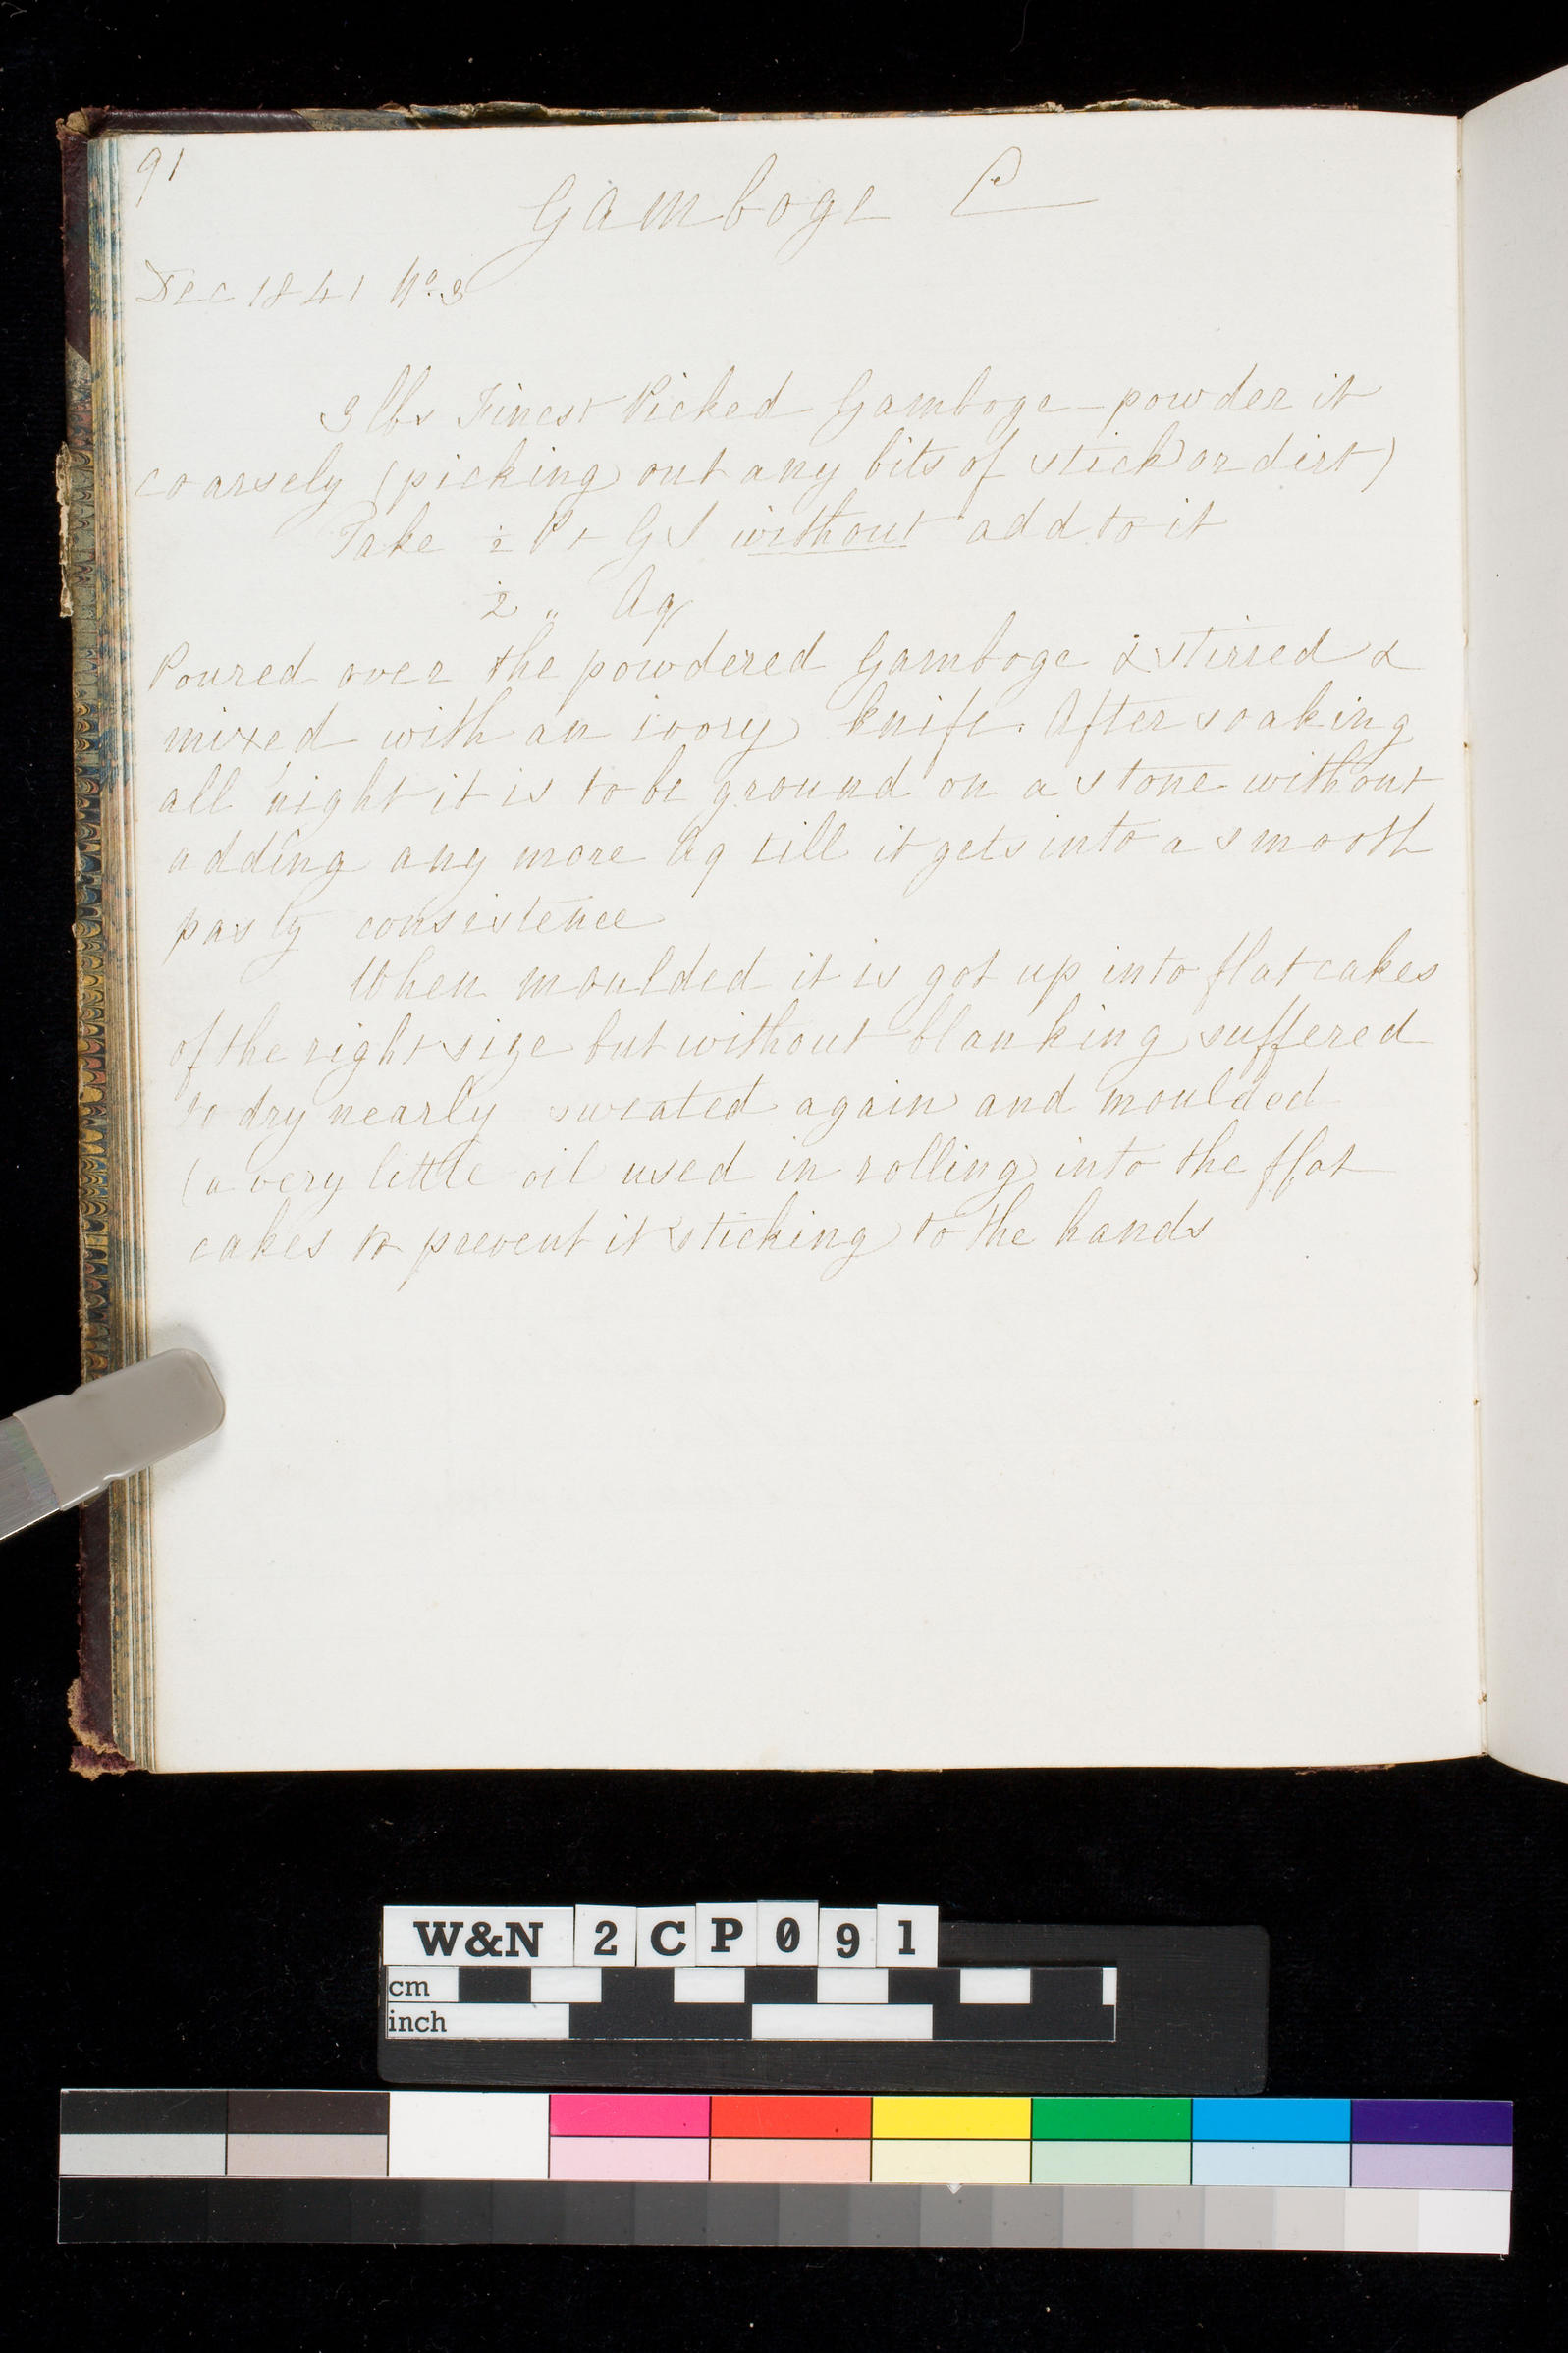 91
Gamboge C
Dec 1841 No. 3
3 lbs Finest Picked Gamboge - powder it
coarsely (picking out any bits of stick or dirt)
Take ½ Pt G S without add to it
½ " Aq
Poured over the powdered Gamboge & stirred &
mixed with an ivory knife. After soaking
all night it is to be ground on a stone without
adding any more Aq till it gets into a smooth
pasty consistence
When moulded it is got up into flat cakes
of the right size but without blanking suffered
to dry nearly sweated again and moulded
(a very little oil used in rolling into the flat
cakes to prevent it sticking to the hands
W&N 2CP091
cm
inch